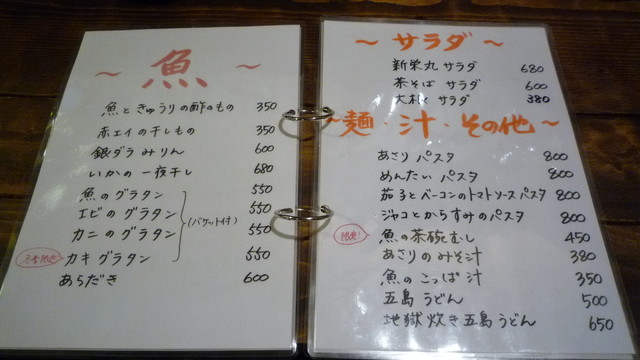 ～ 魚 ～
魚ときゅうりの酢のもの 350
赤エイの干しもの 350
銀ダラみりん 600
いかの一夜干し 680
魚のグラタン 550
エビのグラタン 550
(バケット付)
カニのグラタン 550
カキグラタン 550
あらだき 600
～ サラダ ～
新栄丸サラダ 680
茶そばサラダ 600
大根サラダ 380
～麺・汁・その他～
あさりパスタ 800
めんたいパスタ 800
茄子とベーコンのトマトソースパスタ 800
ジャコとからすみのパスタ 800
限定!
魚の茶碗むし 450
あさりのみそ汁 380
魚のこっぱ汁 350
五島うどん 500
地獄炊き五島うどん 650